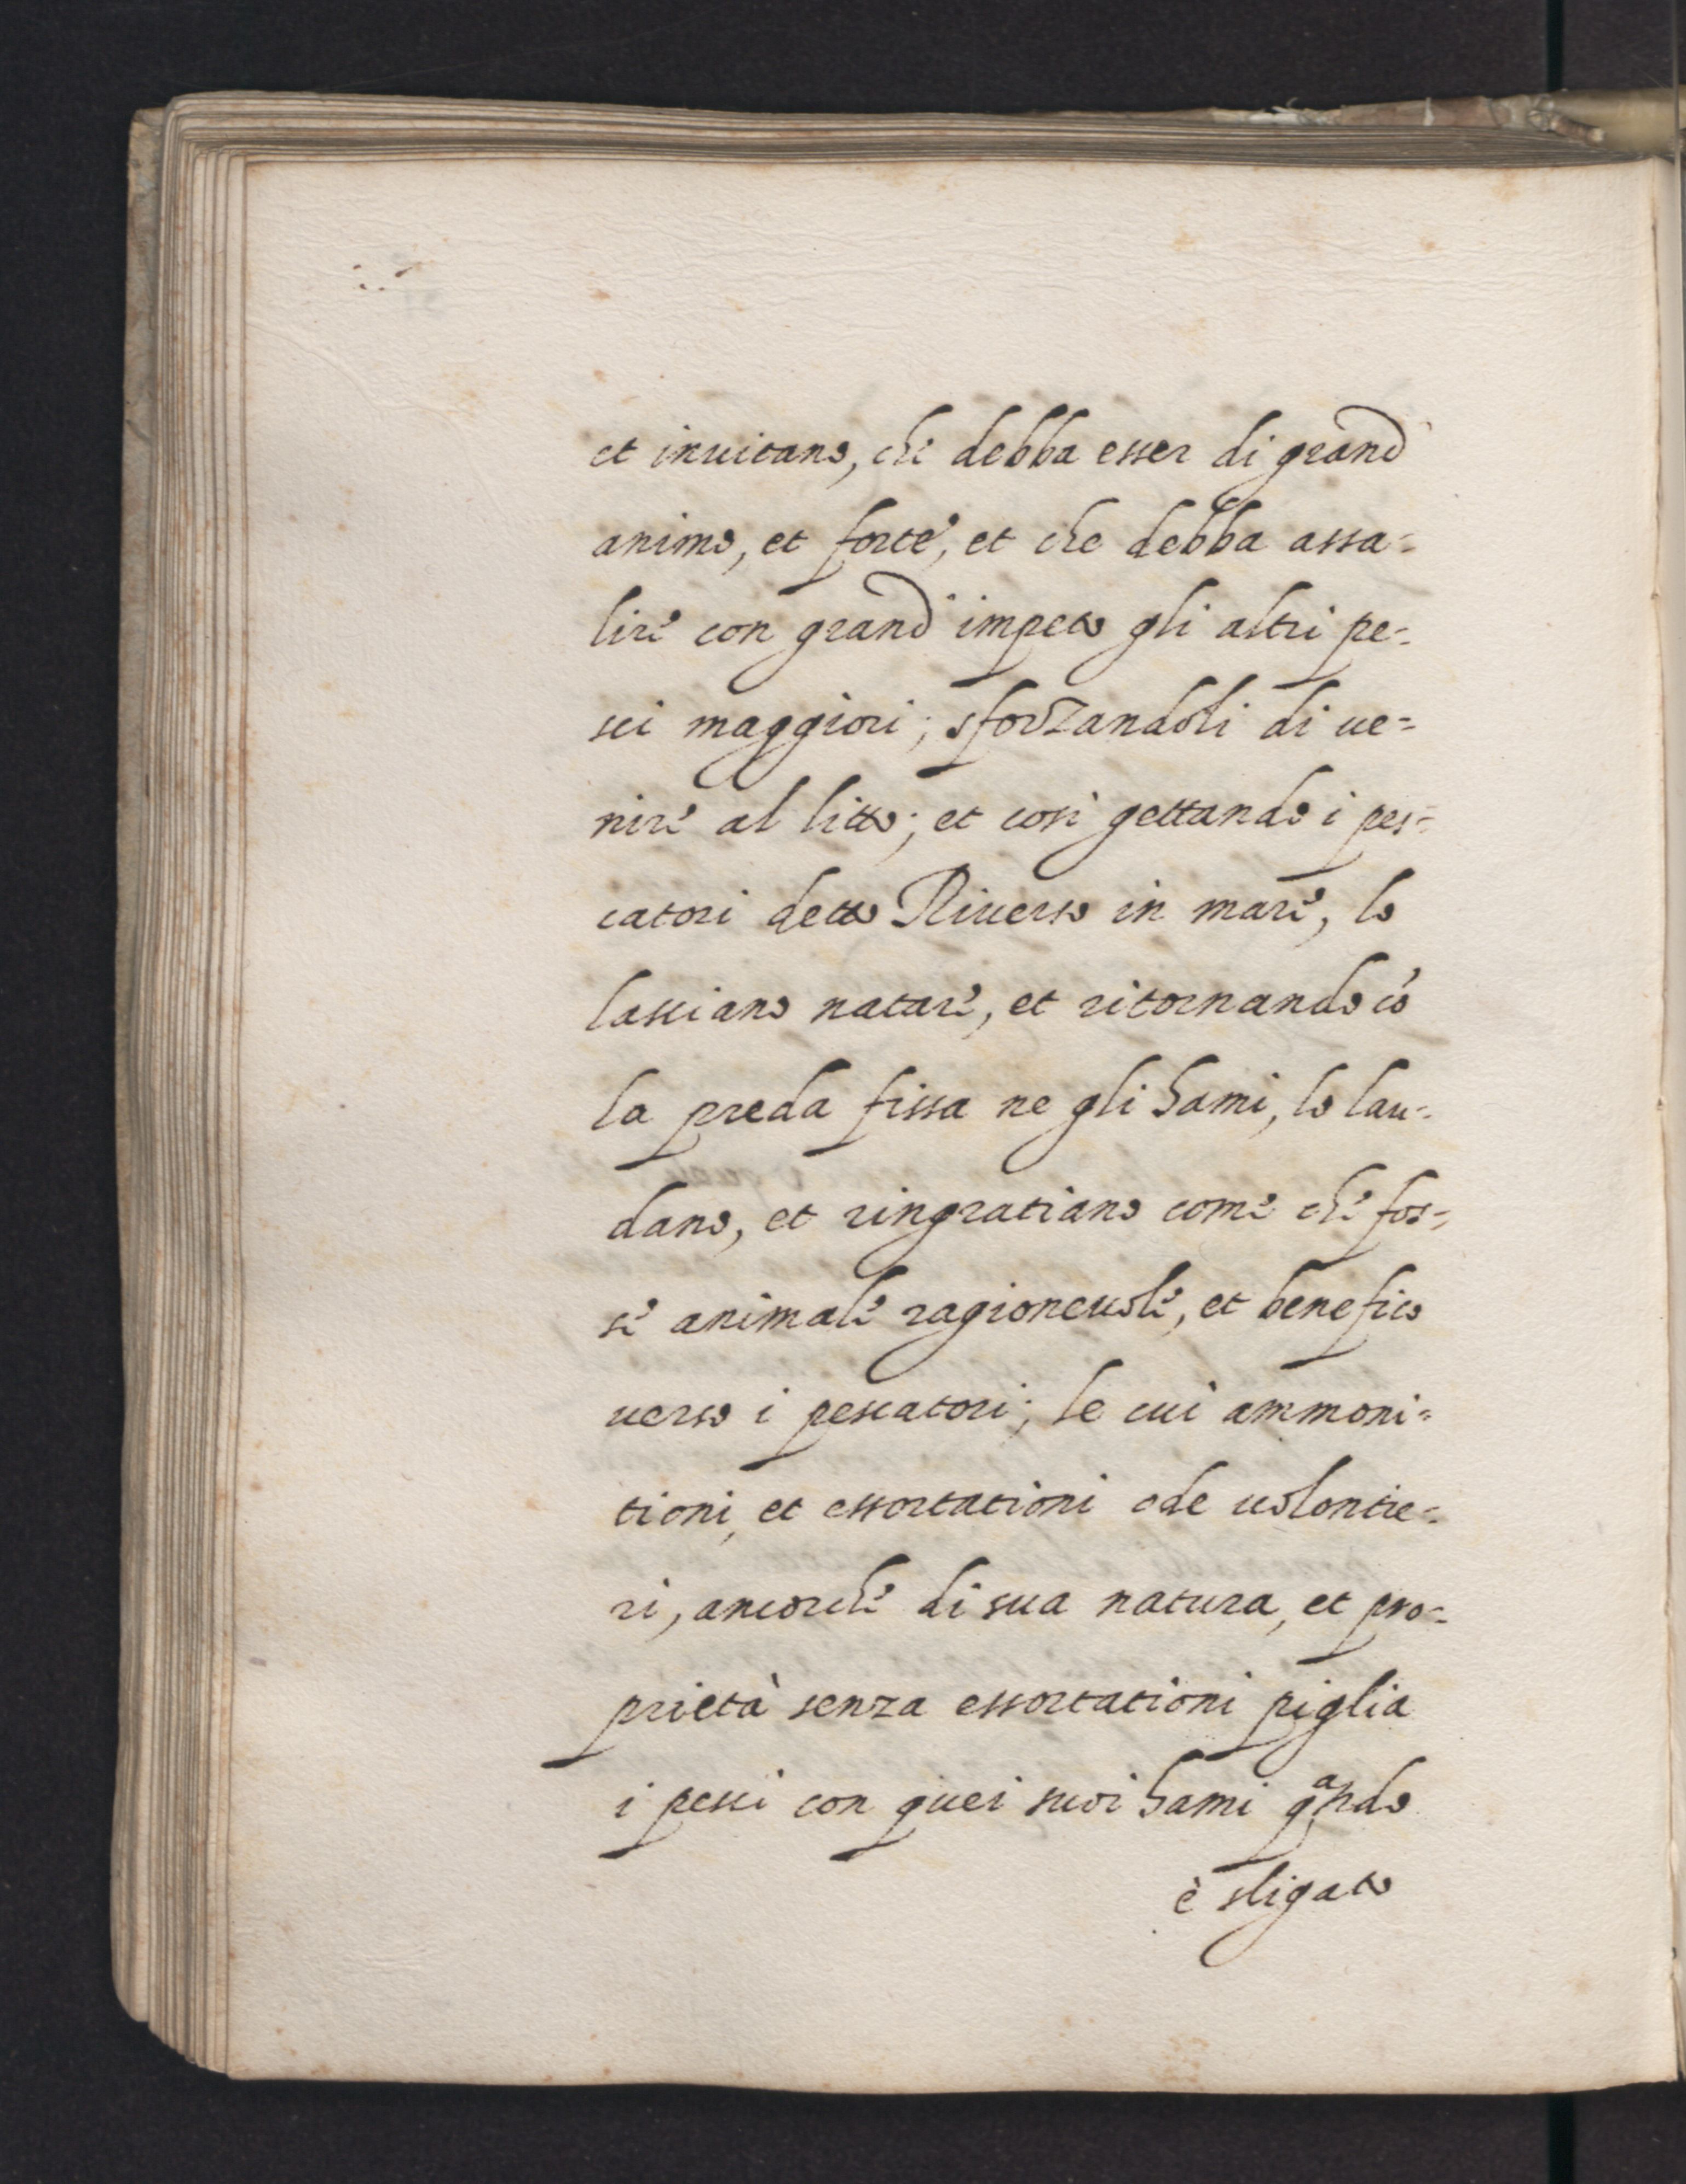 et inuitano, che debba esser di grand
animo, et forte, et che debba assa=
lire con grand impeto gli altri pe=
sci maggiori; sforzandoli di ue=
nire al litto; et così gettando i pes=
catori detto Riuerso in mare, lo
lasciano natare, et ritornando cō
la preda fissa ne gli hami, lo lau=
dano, et ringratiano come che fos=
se animale ragioneuole, et benefico
uerso i pescatori; le cui ammoni=
tioni, et essortationi ode uolontie=
ri, ancorche di sua natura, et pro=
prietà senza essortationi piglia
i pesci con quei suoi hami qᵃndo
è sligato